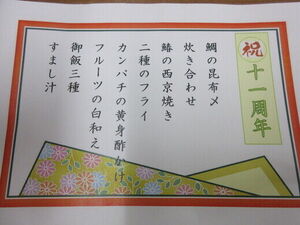 祝
十一周年
鯛の昆布〆
炊き合わせ
鰆の西京焼き
二種のフライ
カンパチの黄身酢かけ
フルーツの白和え
御飯三種
すまし汁